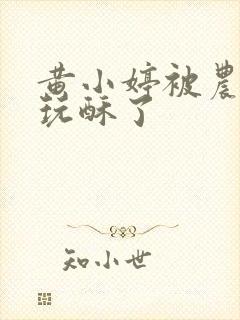 黄小婷被農
玩酥了
知小世